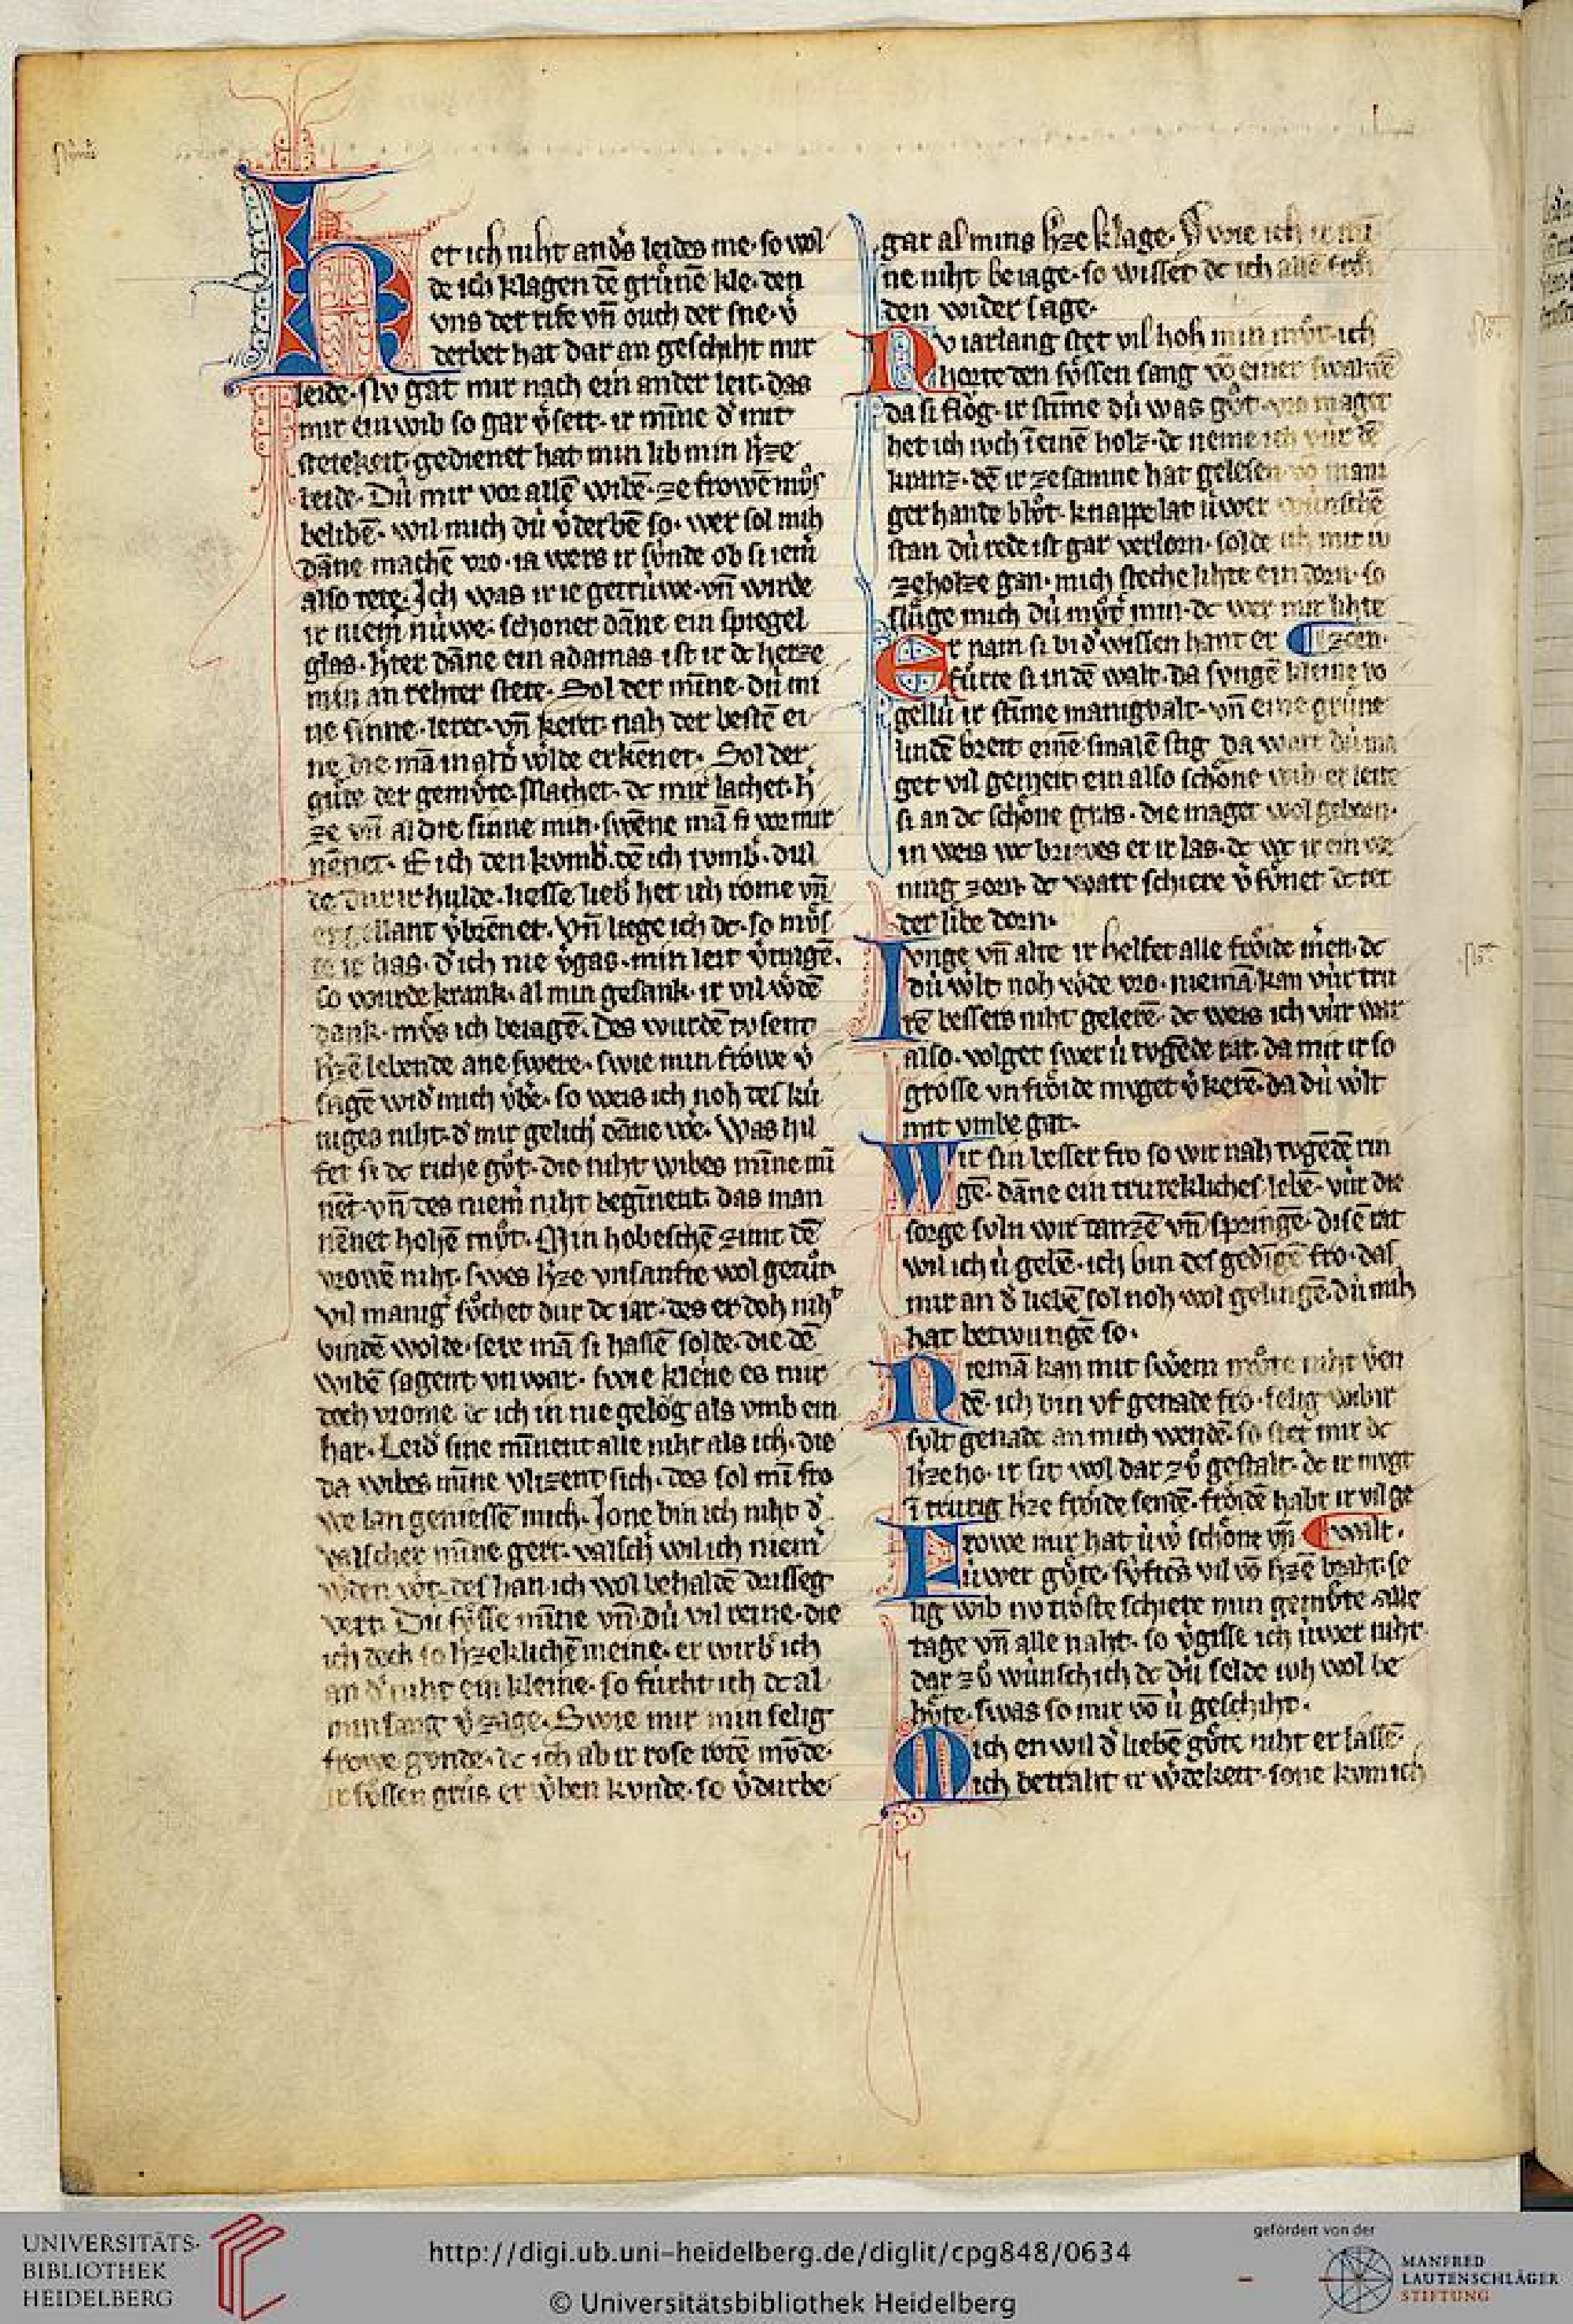 het ich niht anďs leides me· so wol
de ich klagen dē grůnē kle· den
vns der rife vn̄ ouch der sne· v̉
derbet hat dar an geschiht mir
leide· Nv gat mir nach ein ander leit· das
mir ein wib so gar v̉seit· ir mīne ď mit
stetekeit· gedienet hat min lib min h̉ze
beide· Dú mir vor allē wibē· ze frowē můs
belibē· wil mich dú v̉derbē so· wer sol mih
dāne machē vro· ia wers ir sv́nde ob si iem̉
also tete· Ich was ir ie getrúwe· vn̄ wirde
ir niem̉ núwe· schoner dāne ein spiegel
glas· h̉ter dāne ein adamas· ist ir dc herze
min an rehter stete· Sol der mīne· dú mi
ne sinne· leret· vn̄ keret· nah der bestē ei
ne die mā in al d̉ w̉lde erkēnet· Sol der
gůte der gemůte· Machet· dc mir lachet· h̉
ze vn̄ al die sinne min· swēne mā si vor mir
nēnet· E ich den komb̉· dē ich tvmb̉· dul
de dur ir hulde· liesse lieb̉ het ich rome vn̄
engellant v̉brēnet· Vn̄ liege ich dc· so můs
ir has· ď ich nie v̉gas· min leit v̉tragē·
so wurde krank· al min gesank· ir vil w̉dē
dank· můs ich beiagē· Des wurdē tvsent
h̉zē lebende ane swere· swie min frowe v̉
sagē wid̉ mich v̉be· so weis ich noh des kú
niges niht· ď mir gelich dāne w̉e· Was hil
fet si dc riche gůt· die niht wibes mīne mī
nēt· vn̄ des niem̉ niht beginent· das man
nēnet hohē můt· Min hobeschē zimt dē
vrowē niht· swes h̉ze vnsanfte wol getůt·
vil manig sůchet dur dc iar· des er doh niht
vindē wolde· sere mā si hassē solde· die dē
wibē sagent vnwar· swie kleine es mir
doch vrome· dc ich in nie gelög als vmb ein
har· Leid̉ sine mīnent alle niht als ich· die
da wibes mīne vlizent sich· des sol mī fro
we lan geniessē mich· Ione bin ich niht ď
valscher mīne gert· valsch wil ich niem̉
vert· Dú sv́sse mīne vn̄ dú vil reine· die
ich doch so h̉zeklichē meine· er wirb̉ ich
an ď niht ein kleine· so fúrht ich dc al
min sang v̉zage· Swie mir min selig
frowe gonde· dc ich ab ir rose rotē mv̉de·
ir sůssen grůs er w̉ben kvnde· so v̉durbe
gar al mins h̉ze klage· Swie ich ir mī
ne niht beiage· so wisset dc ich allē frői
den wider sage·
Nv iarlang stet vil hoh min můt· ich
horte den sůssen sang vō einer swalwē
da si flög· ir stīme dú was gůt· vro maget
het ich ivch ī einē holz· dc neme ich vúr dē
kranz· dē ir ze samne hat gelesen· vō mani
ger hande blůt· knappe lat úwer wúnschē
stan dú rede ist gar verlorn· solde ich mit iv
ze holze gan· mich steche lihte ein dorn· so
slůge mich dú můt̉ min· dc wer mir lihte
Er nam si bi ď wissen hant er ¶ zorn·
fůrte si in dē walt· da svngē kleine vo
gellú ir stīme manigvalt· vn̄ eine grůne
lindē breit einē smalē stig· da wart dú ma
get vil gemeit· ein also schőne wib· er leite
si an dc schőne gras· die maget wol geborn·
in weis wc brieves er ir las· dc wc ir ein we
ning zorn· dc wart schiere v̉sůnet dc tet
der libe dorn·
Ivnge vn̄ alte ir helfet alle frőide m̉en· dc
dú w̉lt noh w̉de vro· niemā kan vúr tru
rē bessers niht gelerē· dc weis ich vúr war
also· volget swer ú tvgēde rat· da mit ir so
grosse vn frőide mvget v̉kerē· da dú w̉lt
mit vmbe gat·
Wir sin besser fro so wir nah tvgēdē rin
gē· dāne ein trurekliches lebē· vúr die
sorge svln wir tanzē vn̄ springē· disē rat
wil ich ú gebē· ich bin des gedīge fro· das
mir an ď liebē sol noh wol gelingē· dú mih
hat betwungē so·
Niemā kan mir sw̉em můte niht v̉en
dē· ich bin vf genade fro· selig wib ir
svlt genade an mich wendē· so stet mir dc
h̉ze ho· ir sit wol dar zů gestalt· dc ir mvgt
ī trurig h̉ze frőide sendē· frőidē habt ir vil ge
Frowe mir hat úw̉ schőne vn̄ ¶ walt·
úwer gůte· súftēs vil vō h̉zē braht· se
lig wib nv trőste schiere min gemůte· alle
tage vn̄ alle naht· so v̉gisse ich úwer niht·
dar zů wúnsch ich dc dú selde ivh wol be
hůte· swas so mir vō ú geschiht·
Mich en wil ď liebē gůte niht er lassē·
ich betraht ir w̉dekeit· sone kvm ich
UNIVERSITÄTS-
BIBLIOTHEK
HEIDELBERG
http://digi.ub.uni-heidelberg.de/diglit/cpg848/0634
© Universitätsbibliothek Heidelberg
gefördert von der
MANFRED
LAUTENSCHLÄGER
STIFTUNG